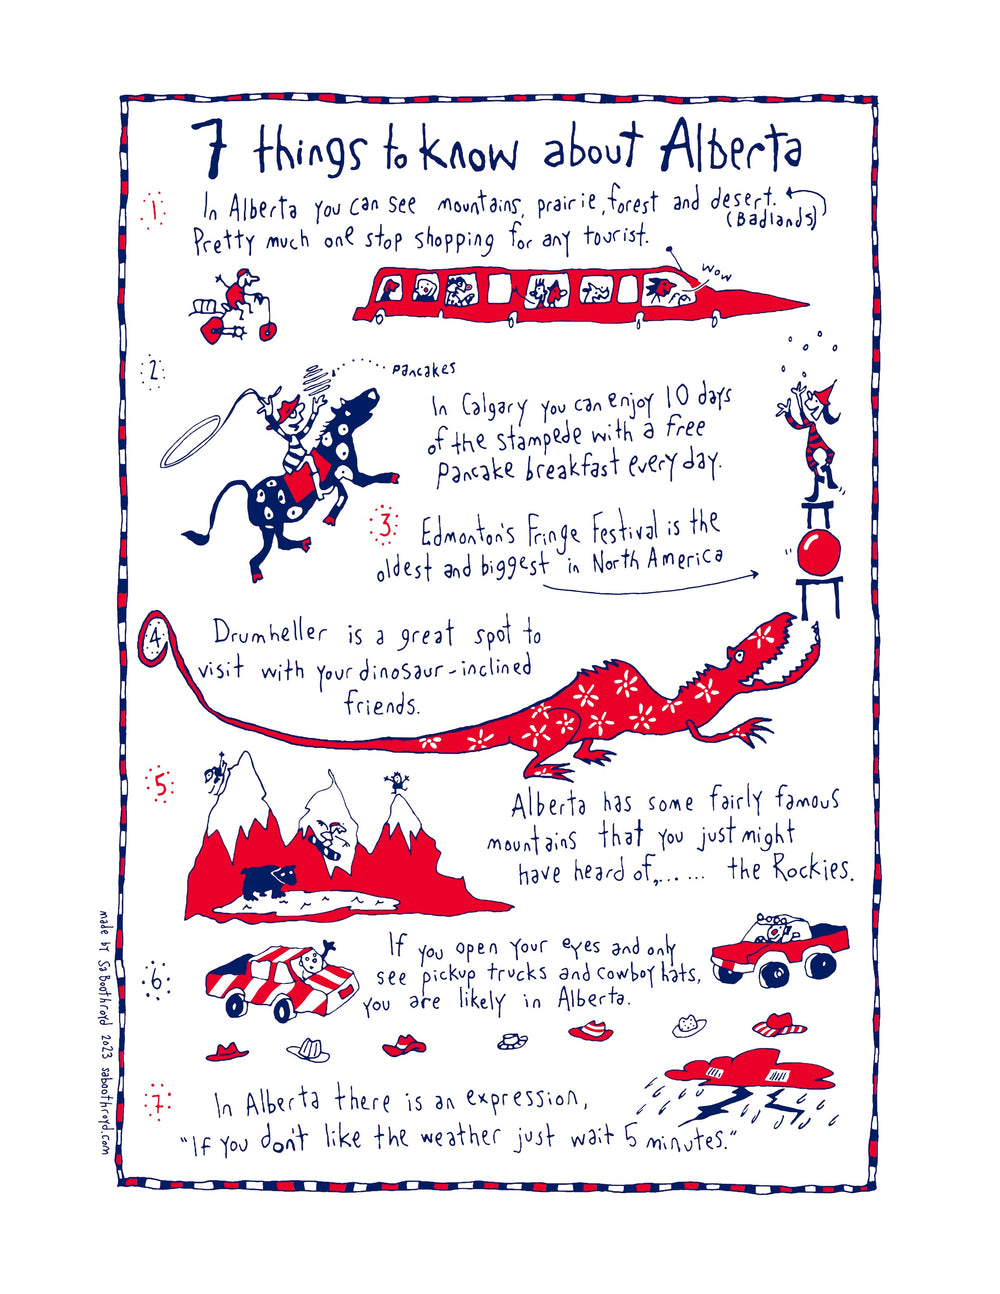 7 things to know about Alberta
1
In Alberta you can see mountains, prairie, forest and desert.
(Badlands)
Pretty much one stop shopping for any tourist.
wow
2
pancakes
In Calgary you can enjoy 10 days
of the stampede with a free
pancake breakfast every day.
3
Edmonton's Fringe Festival is the
oldest and biggest in North America
4
Drumheller is a great spot to
visit with your dinosaur-inclined
friends.
5
Alberta has some fairly famous
mountains that you just might
have heard of,...... the Rockies.
6
If you open your eyes and only
see pickup trucks and cowboy hats,
you are likely in Alberta.
7
In Alberta there is an expression,
"If you don't like the weather just wait 5 minutes."
made by Sa Boothroyd 2023 saboothroyd.com